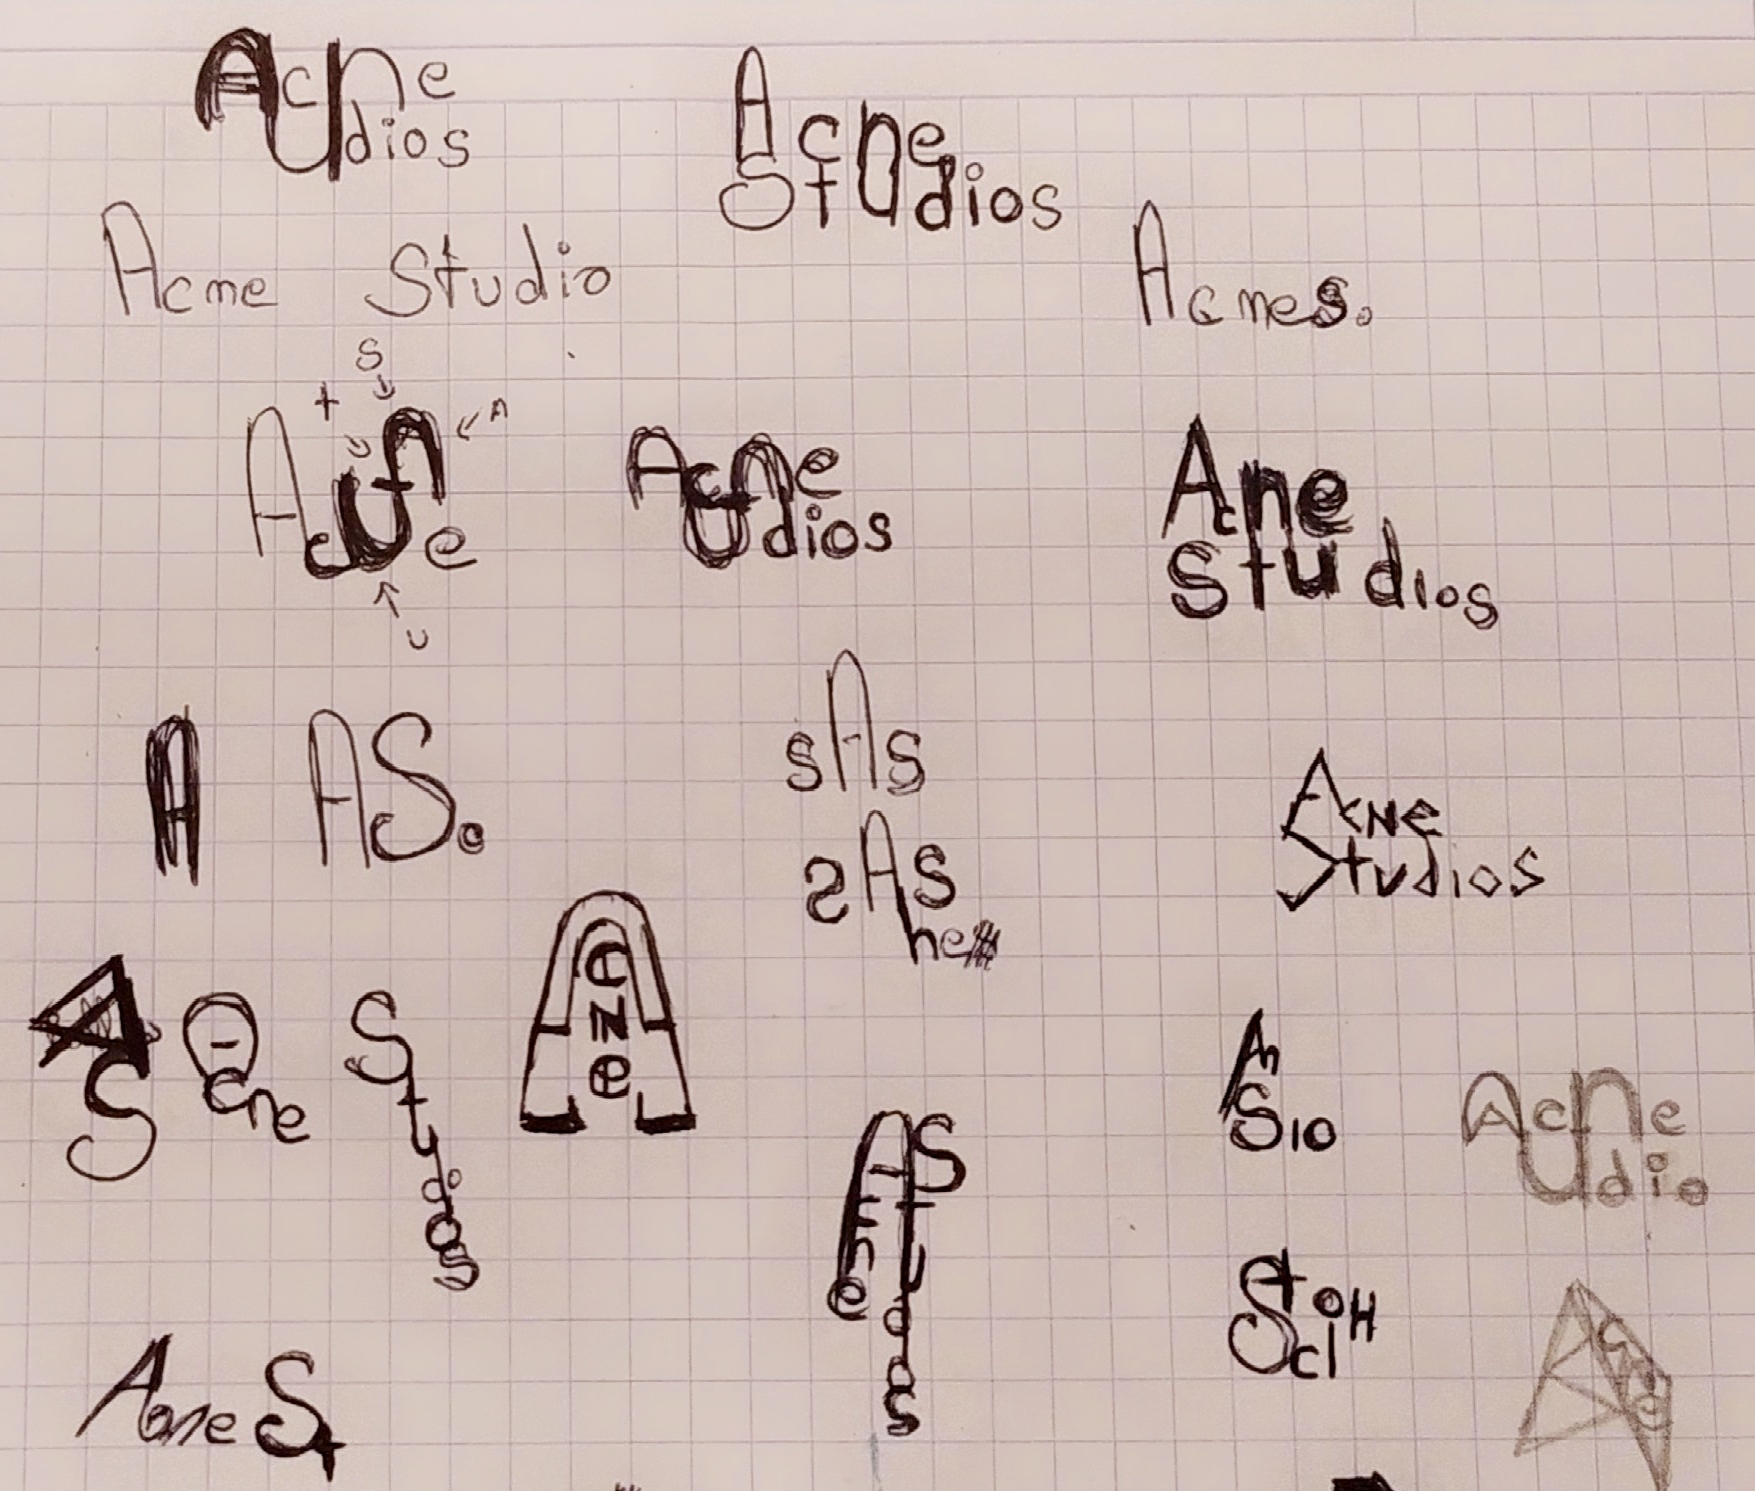 Acne
udios
Acne
Studios
Acme Studio
Acmes.
S
t
n
Acne
U
Acne
udios
Acne
Studios
A
AS.
sAs
Acne
Studios
sAs
ne
A
S
cne
Studios
cne
AS
cne
tudios
An
S10
Acne
udio
Acne St